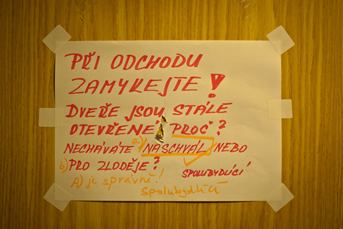 PŘI ODCHODU
ZAMYKEJTE!
DVEŘE JSOU STÁLE
OTEVŘENÉ! PROČ?
NECHÁVÁTE a) NASCHVÁL NEBO
b) PRO ZLODĚJE?
SPOLUBYDÍCÍ
A) je správně!
Spolubydlící